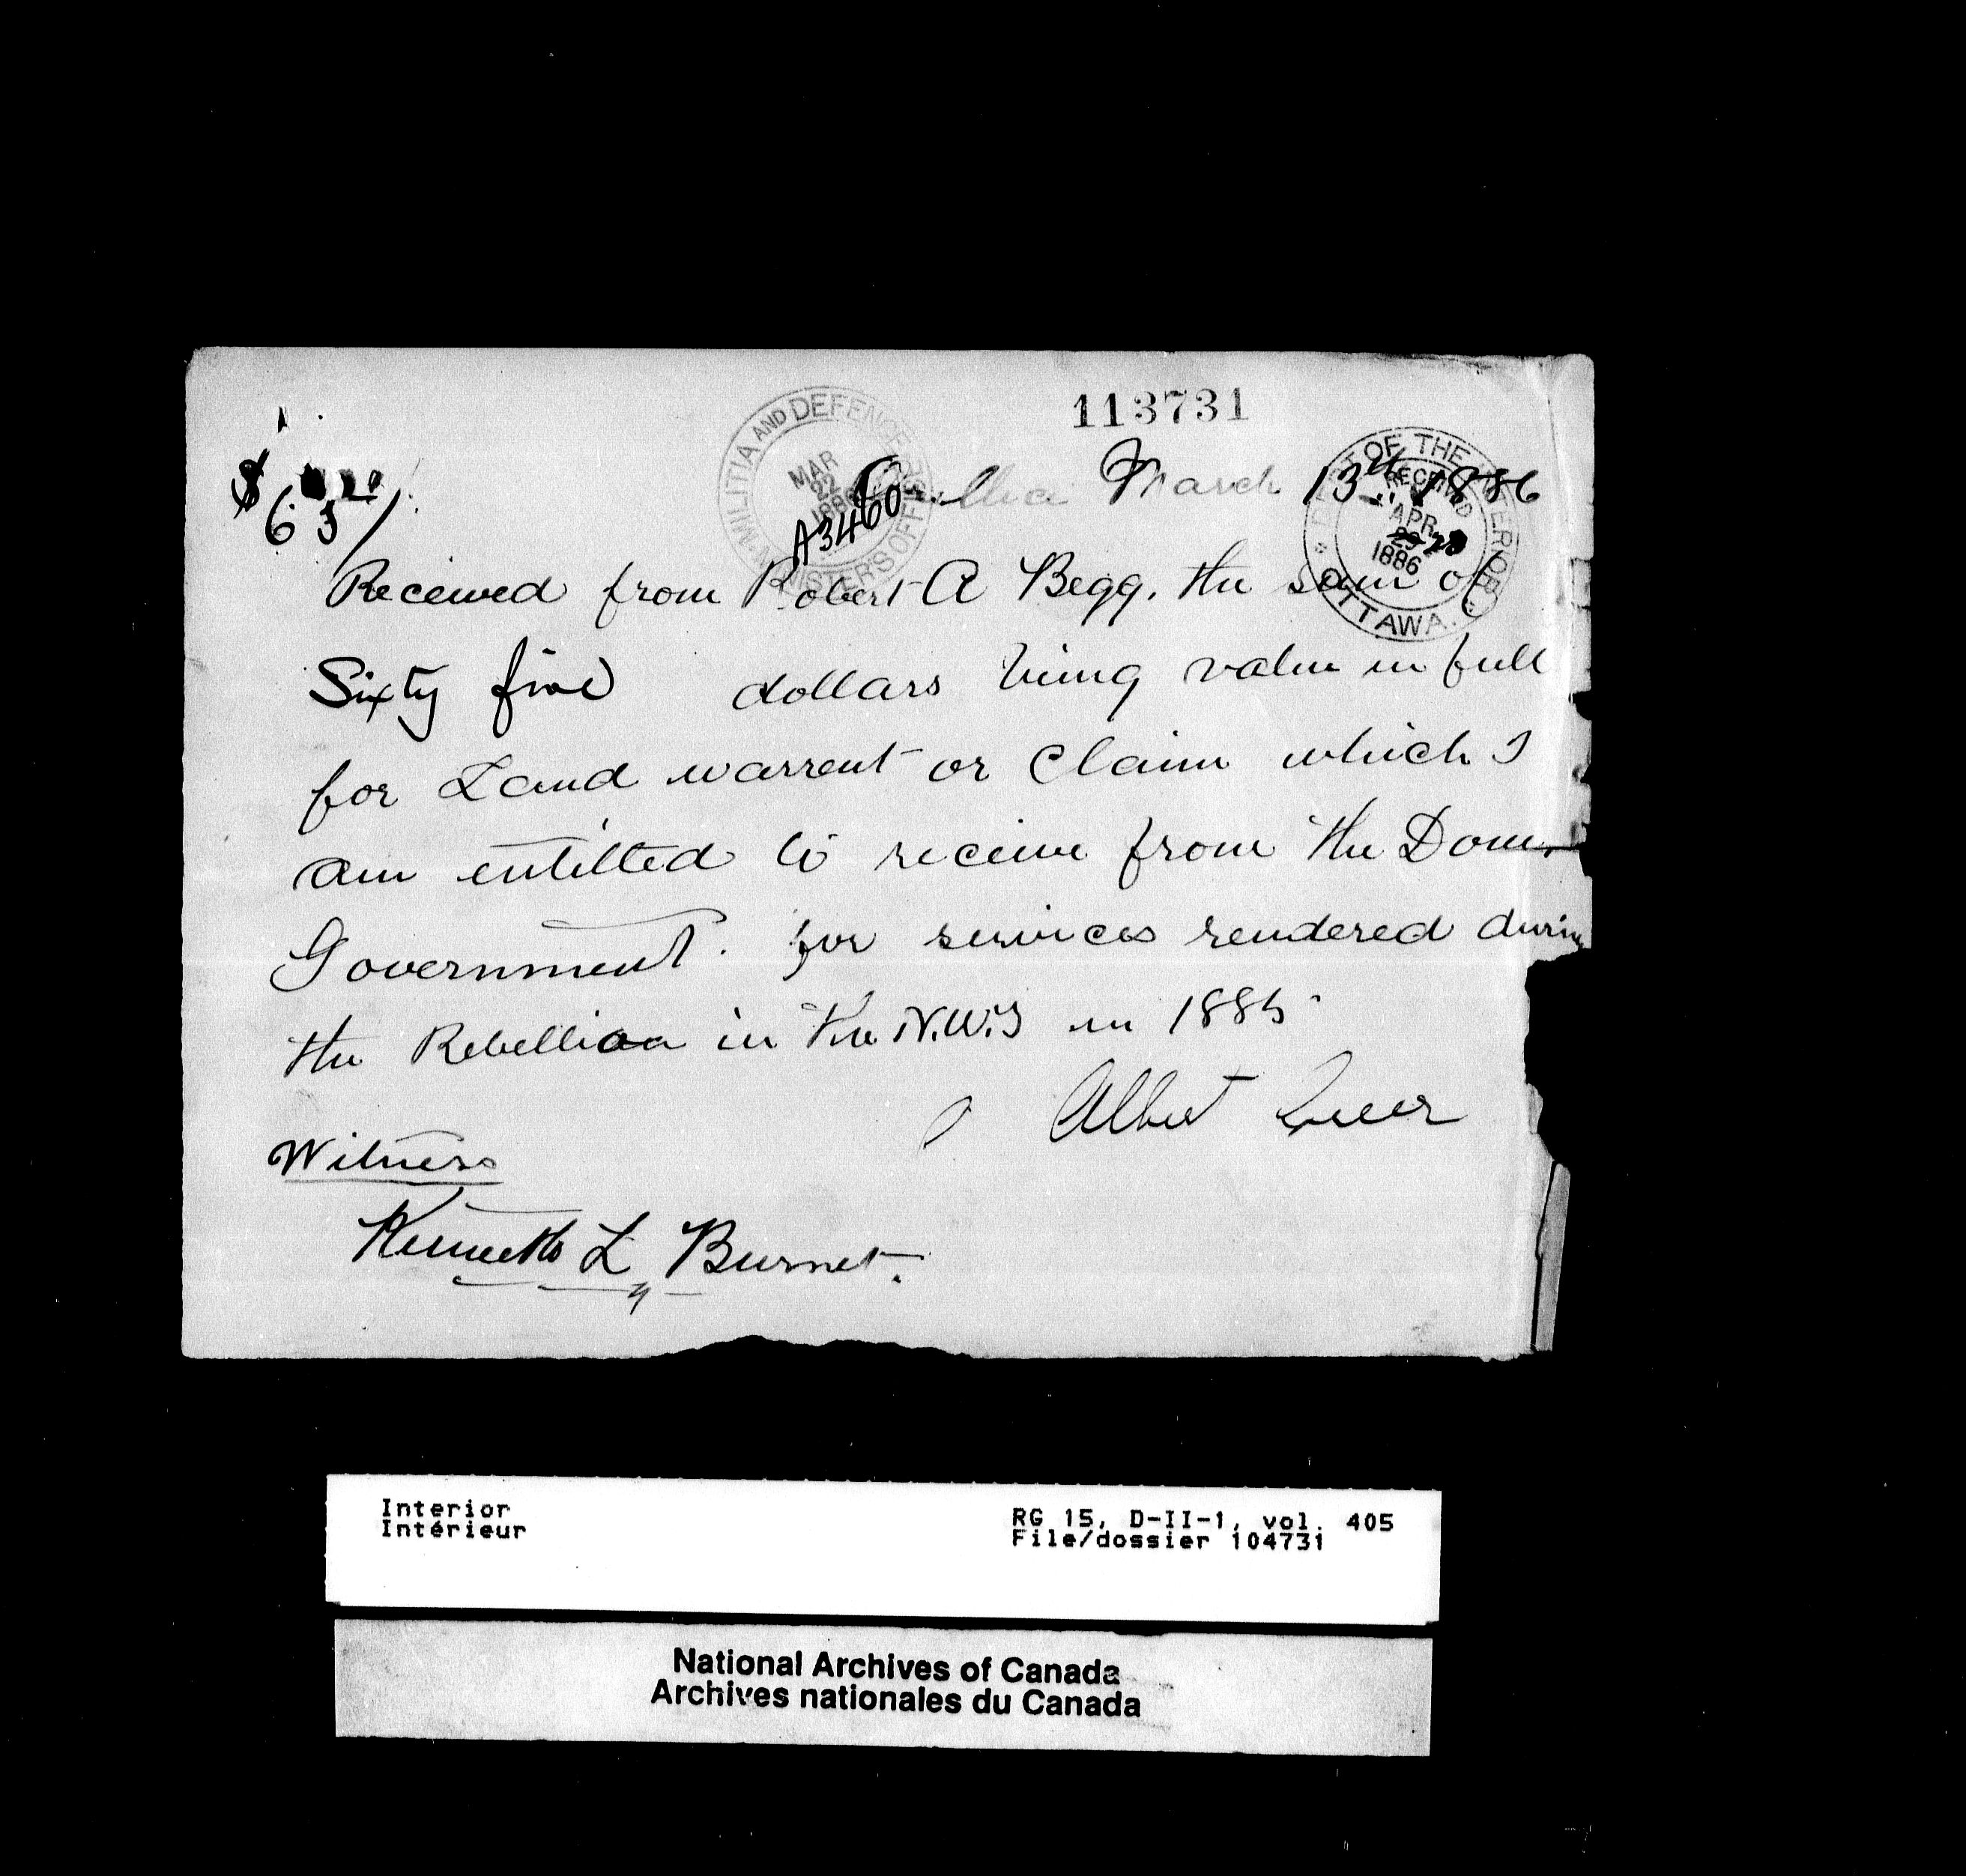 113731
MILITIA AND DEFENCE MINISTER'S OFFICE
MAR
22
1886
A3460
DEPT OF THE INTERIOR
RECEIVED
APR
29 28
1886
OTTAWA.
$
65
Orillia March 13th 1886
Received from Robert A Begg. the sum of
Sixty five dollars being value in full
for Land warrent or Claim which I
am entitled to receive from the Dom.
Government. for services rendered during
the Rebellion in the N.W.T in 1885
Albert
Witness
Kenneth L Burnet.
Interior
Intérieur
RG 15, D-II-1, vol. 405
File/dossier 104731
National Archives of Canada
Archives nationales du Canada